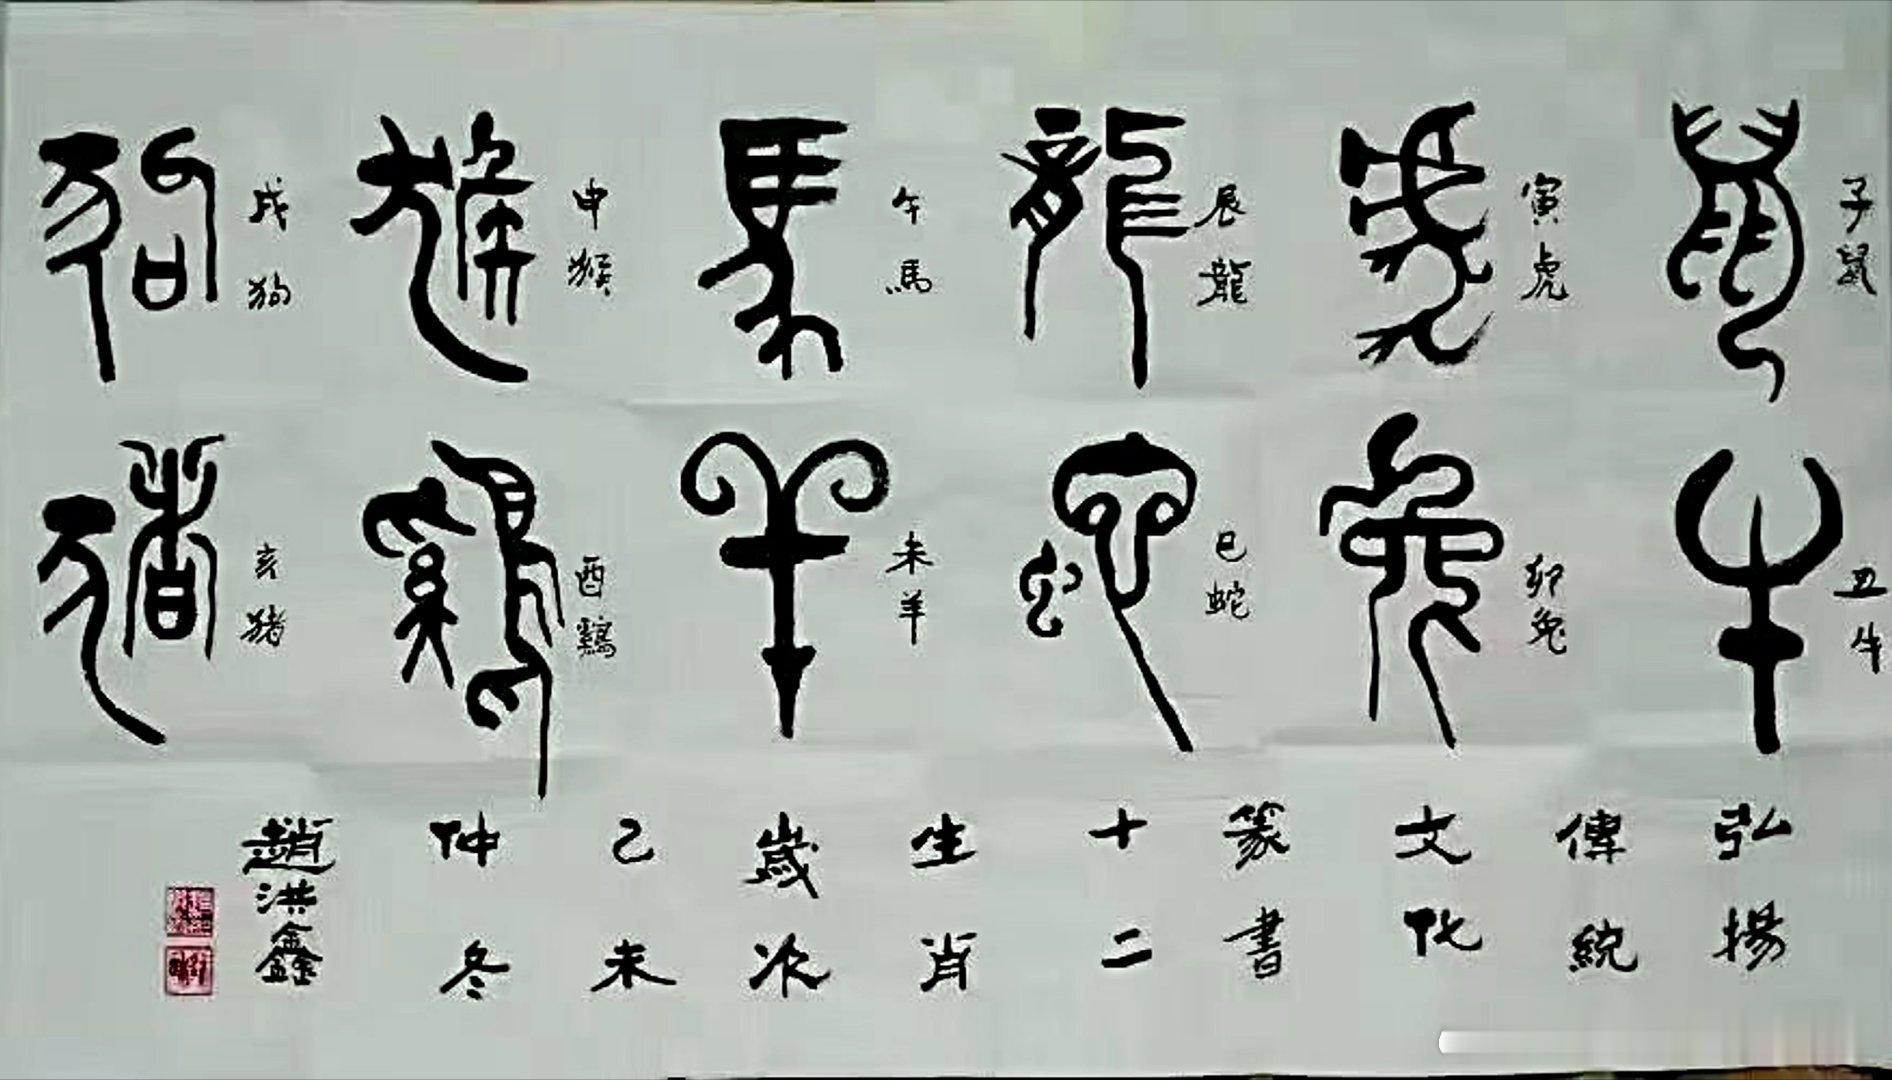 鼠
子鼠
牛
丑牛
虎
寅虎
兔
卯兔
龍
辰龍
蛇
巳蛇
馬
午馬
羊
未羊
猴
申猴
鷄
酉鷄
狗
戌狗
猪
亥猪
弘揚
傳統
文化
篆書
十二
生肖
歲次
己未
仲冬
趙洪鑫